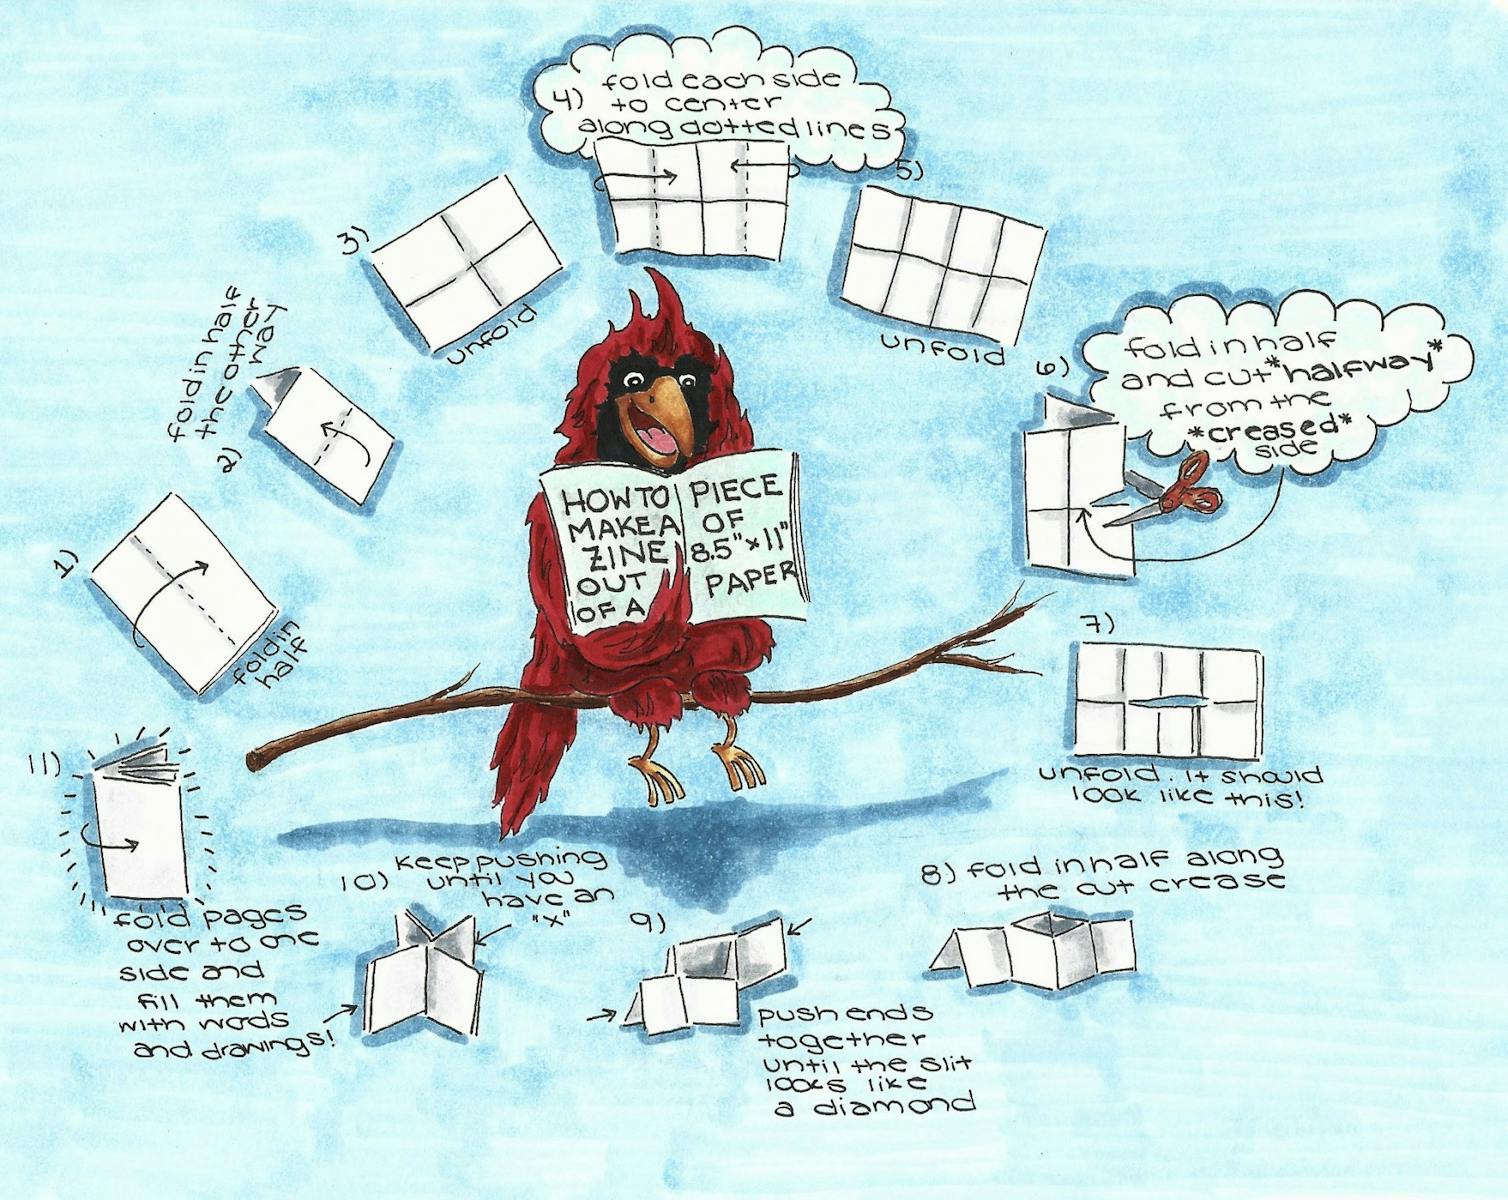 HOW TO
MAKE A
ZINE
OUT
OF A
PIECE
OF
8.5" x 11"
PAPER
1)
fold in
half
2)
fold in half
the other
way
3)
unfold
4) fold each side
to center
along dotted lines
5)
unfold
6)
fold in half
and cut *halfway*
from the
*creased*
side
7)
unfold. It should
look like this!
8) fold in half along
the cut crease
9)
push ends
together
until the slit
looks like
a diamond
10) keep pushing
until you
have an
"X"
11)
fold pages
over to one
side and
fill them
with words
and drawings!